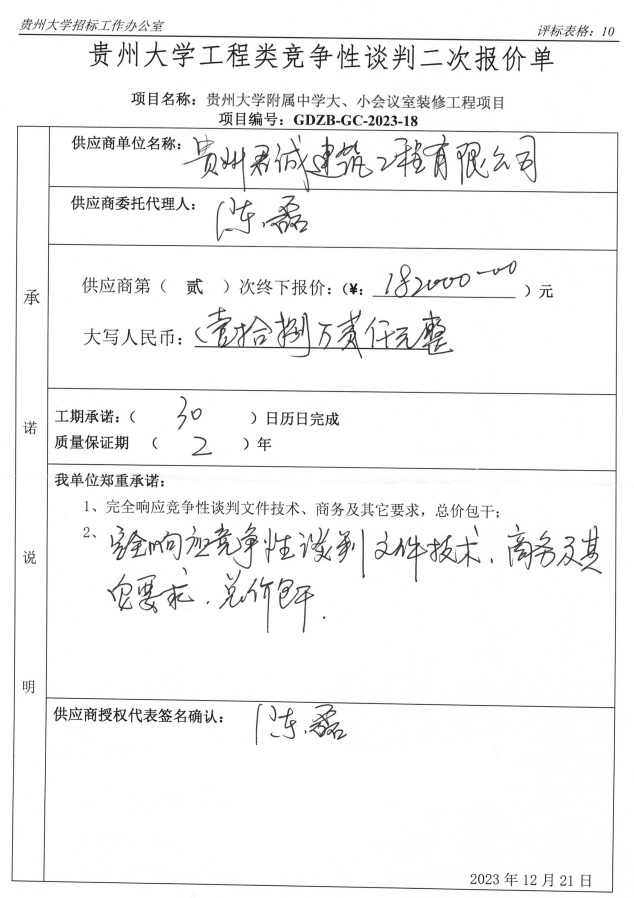 贵州大学招标工作办公室 评标表格：10
贵州大学工程类竞争性谈判二次报价单
项目名称：贵州大学附属中学大、小会议室装修工程项目
项目编号：GDZB-GC-2023-18
承诺说明
供应商单位名称：贵州君诚建筑工程有限公司
供应商委托代理人：陈磊
供应商第（ 贰 ）次终下报价：（¥：182000.00）元
大写人民币：（壹拾捌万贰仟元整
工期承诺：（ 30 ）日历日完成
质量保证期 （ 2 ）年
我单位郑重承诺：
1、完全响应竞争性谈判文件技术、商务及其它要求，总价包干；
2、完全响应竞争性谈判文件技术、商务及其
它要求、总价包干.
供应商授权代表签名确认：陈磊
2023年12月21日